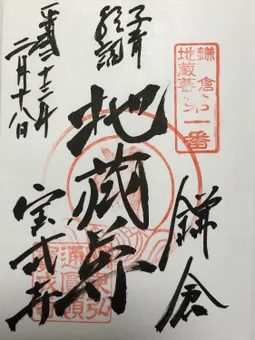 鎌倉
地蔵尊
第一番
子育
経読
地蔵尊
鎌倉
宝戒寺
平成二十三年
二月十八日